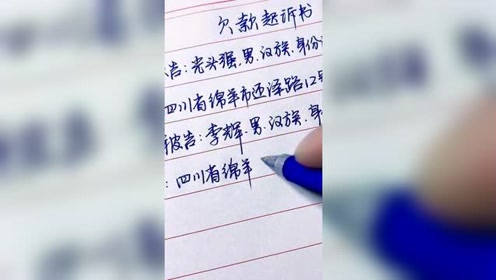 欠款起诉书
告:光头强.男.汉族.身份
四川省绵羊市还泽路12号
被告:李辉.男.汉族.身
:四川省绵羊